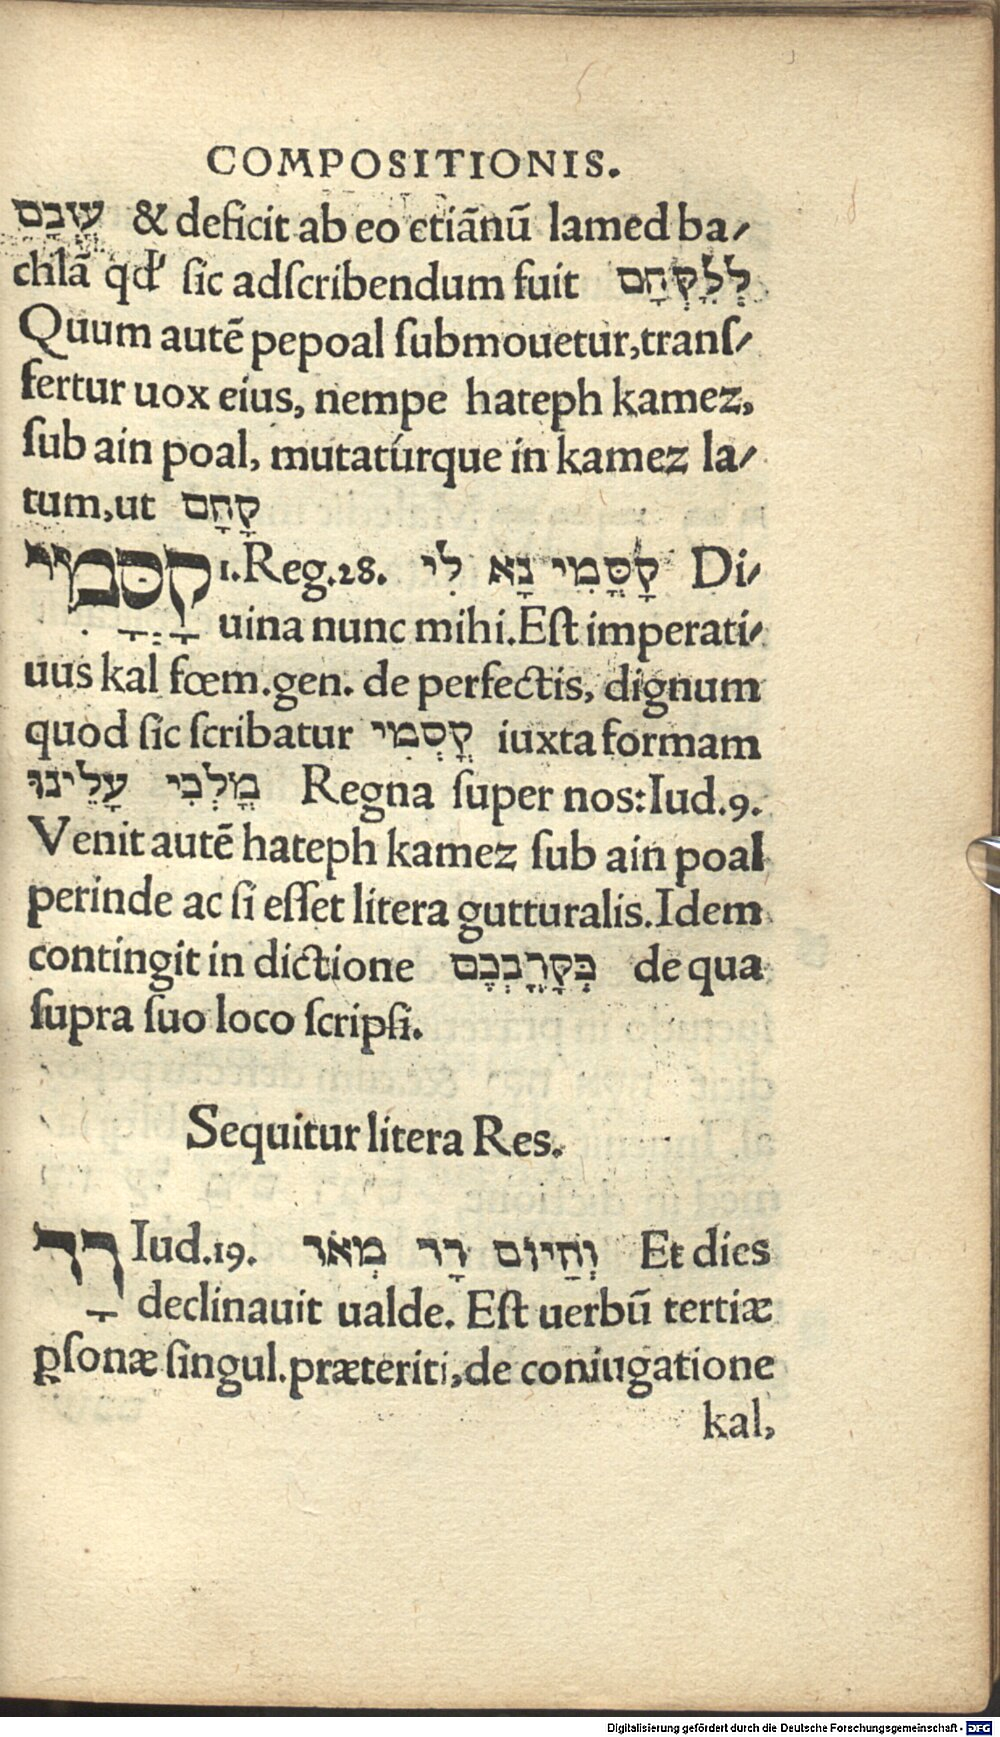 COMPOSITIONIS.
עֲזָבָם & deficit ab eo etiãnũ lamed ba⸗
chlã qđ sic adſcribendum fuit לְלְקָחָם
Quum autẽ pepoal ſubmouetur,tranſ⸗
fertur uox eius, nempe hateph kamez,
ſub ain poal, mutatúrque in kamez la⸗
tum,ut קָחָם
קָסֳּמִי 1.Reg.28. קָסֳּמִי נָא לִי Di⸗
uina nunc mihi.Eſt imperati⸗
uus kal fœm.gen. de perfectis, dignum
quod ſic ſcribatur קָסְמִי iuxta formam
מָלְכִי עָלֵינוּ Regna ſuper nos:Iud.9.
Venit autẽ hateph kamez ſub ain poal
perinde ac ſi eſſet litera gutturalis.Idem
contingit in dictione בְּקָרֳבְכֶם de qua
ſupra ſuo loco ſcripſi.
Sequitur litera Res.
רָד Iud.19. וְהַיּוֹם רָד מְאֹד Et dies
declinauit ualde. Eſt uerbũ tertiæ
ꝑſonæ ſingul.præteriti,de coniugatione
kal,
Digitalisierung gefördert durch die Deutsche Forschungsgemeinschaft - DFG